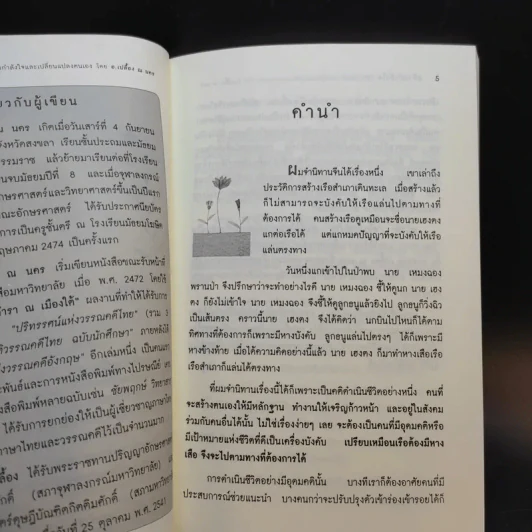 กำลังใจและเปลี่ยนแปลงตนเอง โดย ศ.เปลื้อง ณ นคร
ยวกับผู้เขียน
ณ นคร เกิดเมื่อวันเสาร์ที่ 4 กันยายน
จังหวัดสงขลา เรียนชั้นประถมและมัธยม
ธรรมราช แล้วย้ายมาเรียนต่อที่โรงเรียน
จนจบมัธยมปีที่ 8 และเมื่อจุฬาลงกรณ์
อักษรศาสตร์และวิทยาศาสตร์ขึ้นเป็นปีแรก
คณะอักษรศาสตร์ ได้รับประกาศนียบัตร
เป็นครูชั้นตรี ณ โรงเรียนมัธยมโฆษิต
พฤษภาคม 2474 เป็นครั้งแรก
ณ นคร เริ่มเขียนหนังสือขณะรับหน้าที่
มหาวิทยาลัย เมื่อ พ.ศ. 2472 โดยใช้
รา ณ เมืองใต้" ผลงานที่ทำให้ได้รับการ
"ปริทรรศน์แห่งวรรณคดีไทย" (รวม 3
วรรณคดีไทย ฉบับนักศึกษา" ภายหลังยัง
วรรณคดีอังกฤษ" อีกเล่มหนึ่ง เป็นคนแรก
พันธ์และการหนังสือพิมพ์ทางไปรษณีย์
หนังสือพิมพ์หลายฉบับเช่น ชัยพฤกษ์ วิทยาสาร
ได้รับการยกย่องให้เป็นผู้เชี่ยวชาญภาษาไทย
ภาษาไทยและวรรณคดีไว้เป็นจำนวนมาก
ลื้อง ได้รับพระราชทานปริญญาอักษรศาสตร
ศักดิ์ (สภาจุฬาลงกรณ์มหาวิทยาลัย)
ตร์ดุษฎีบัณฑิตกิตติมศักดิ์ (สภามหาวิทยาลัย
เมื่อวันที่ 25 ตุลาคม พ.ศ. 2541
5
คำนำ
ผมจำนิทานจีนได้เรื่องหนึ่ง เขาเล่าถึง
ประวัติการสร้างเรือสำเภาเดินทะเล เมื่อสร้างแล้ว
ก็ไม่สามารถจะบังคับให้เรือแล่นไปตามทางที่
ต้องการได้ คนสร้างเรือดูเหมือนจะชื่อนายเฮงคง
แกต่อเรือได้ แต่แกหมดปัญญาที่จะบังคับให้เรือ
แล่นตรงทาง
วันหนึ่งแกเข้าไปในป่าพบ นาย เหมงฉอง
พรานป่า จึงปรึกษาว่าจะทำอย่างไรดี นาย เหมงฉอง ชี้ให้ดูนก นาย เฮง
คง ก็ยังไม่เข้าใจ นาย เหมงฉอง จึงชี้ให้ดูลูกธนูแล้วยิงไป ลูกธนูก็วิ่งฉิว
เป็นเส้นตรง คราวนี้นาย เฮงคง จึงได้คิดว่า นกบินไปไหนก็ได้ตาม
ทิศทางที่ต้องการก็เพราะมีหางบังคับ ลูกธนูแล่นไปตรงๆ ได้ก็เพราะมี
หางข้างท้าย เมื่อได้ความคิดอย่างนี้แล้ว นาย เฮงคง ก็มาทำหางเสือเรือ
เรือสำเภาก็แล่นได้ตรงทาง
ที่ผมจำนิทานเรื่องนี้ได้ก็เพราะเป็นคติดำเนินชีวิตอย่างหนึ่ง คนที่
จะสร้างตนเองให้มีหลักฐาน ทำงานให้เจริญก้าวหน้า และอยู่ในสังคม
ร่วมกับคนอื่นได้นั้น ไม่ใช่เรื่องง่ายๆ เลย จะต้องเป็นคนที่มีอุดมคติหรือ
มีเป้าหมายแห่งชีวิตที่ดีเป็นเครื่องบังคับ เปรียบเหมือนเรือต้องมีหาง
เสือ จึงจะไปตามทางที่ต้องการได้
การดำเนินชีวิตอย่างมีอุดมคตินั้น บางทีเราก็ต้องอาศัยคนที่มี
ประสบการณ์ช่วยแนะนำ บางคนกว่าจะปรับปรุงตัวเข้าร่องเข้ารอยได้ก็